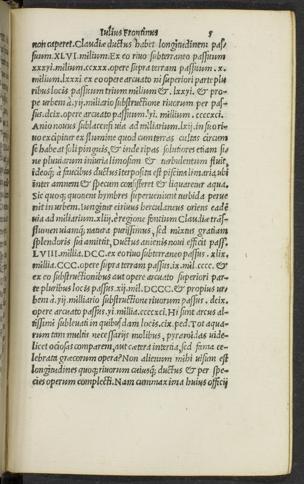 Iulius Frontinus 5
non caperet. Claudiæ ductus habet longitudinem pas/
suum.XLVI.milium. Ex eo riuo subterraneo passuum
xxxvi.milium.ccxxx. opere supra terram passuum.x.
milium.lxxxi ex eo opere arcuato ni superiori parte plu
ribus locis passuum trium milium &.lxxvi. & pro
pe urbem à.vij.miliario substructione riuorum per pas/
sus.dcix. opere arcuato passuum.vi. milium.ccccxci.
Anio nouus sublacensi uia ad miliarium.lxij. in suo ri
uo excipitur ex flumine quod cum terras cultas circum
se habeat soli pinguis, & inde ripas solutiores etiam si
ne pluuiarum iniuria limosum & turbulentum fluit,
ideoq; à faucibus ductus iterposita est piscina limaria, ubi
inter amnem & specum consisteret & liquaretur aqua.
Sic quoq; quoties hymbres superueniunt turbida perue
nit in urbem. Iungitur ei riuus herculaneus oriens eadē
uia ad miliarium.xliij. è regione fontium Claudiæ trās/
flumen uiamq; natura purissimus, sed mixtus gratiam
splendoris sui amittit, Ductus anienis noui efficit pass.
LVIII.millia.DCC. ex eo riuo subterraneo passus.xlix.
millia.CCC. opere supra terram passus.ix.mil.cccc. &
ex eo substructionibus aut opere arcuato superiori par-
te pluribus locis passus.xij.mil.DCCC. & propius ur
bem à.vij.milliario substructione riuorum passus.dcix.
opere arcuato passus.vi.millia.ccccxci. Hi sunt arcus al-
tissimi subleuati in quibusdam locis.cix.ped. Tot aqua-
rum tam multis necessarijs molibus, pyramidas uide-
licet ociosas comparem, aut cætera intertia, sed fama ce-
lebrata græcorum opera? Non alienum mihi uisum est
longitudines quoq; riuorum cuiusq; ductus & per spe-
cies operum complecti. Nam cum maxima huius officij